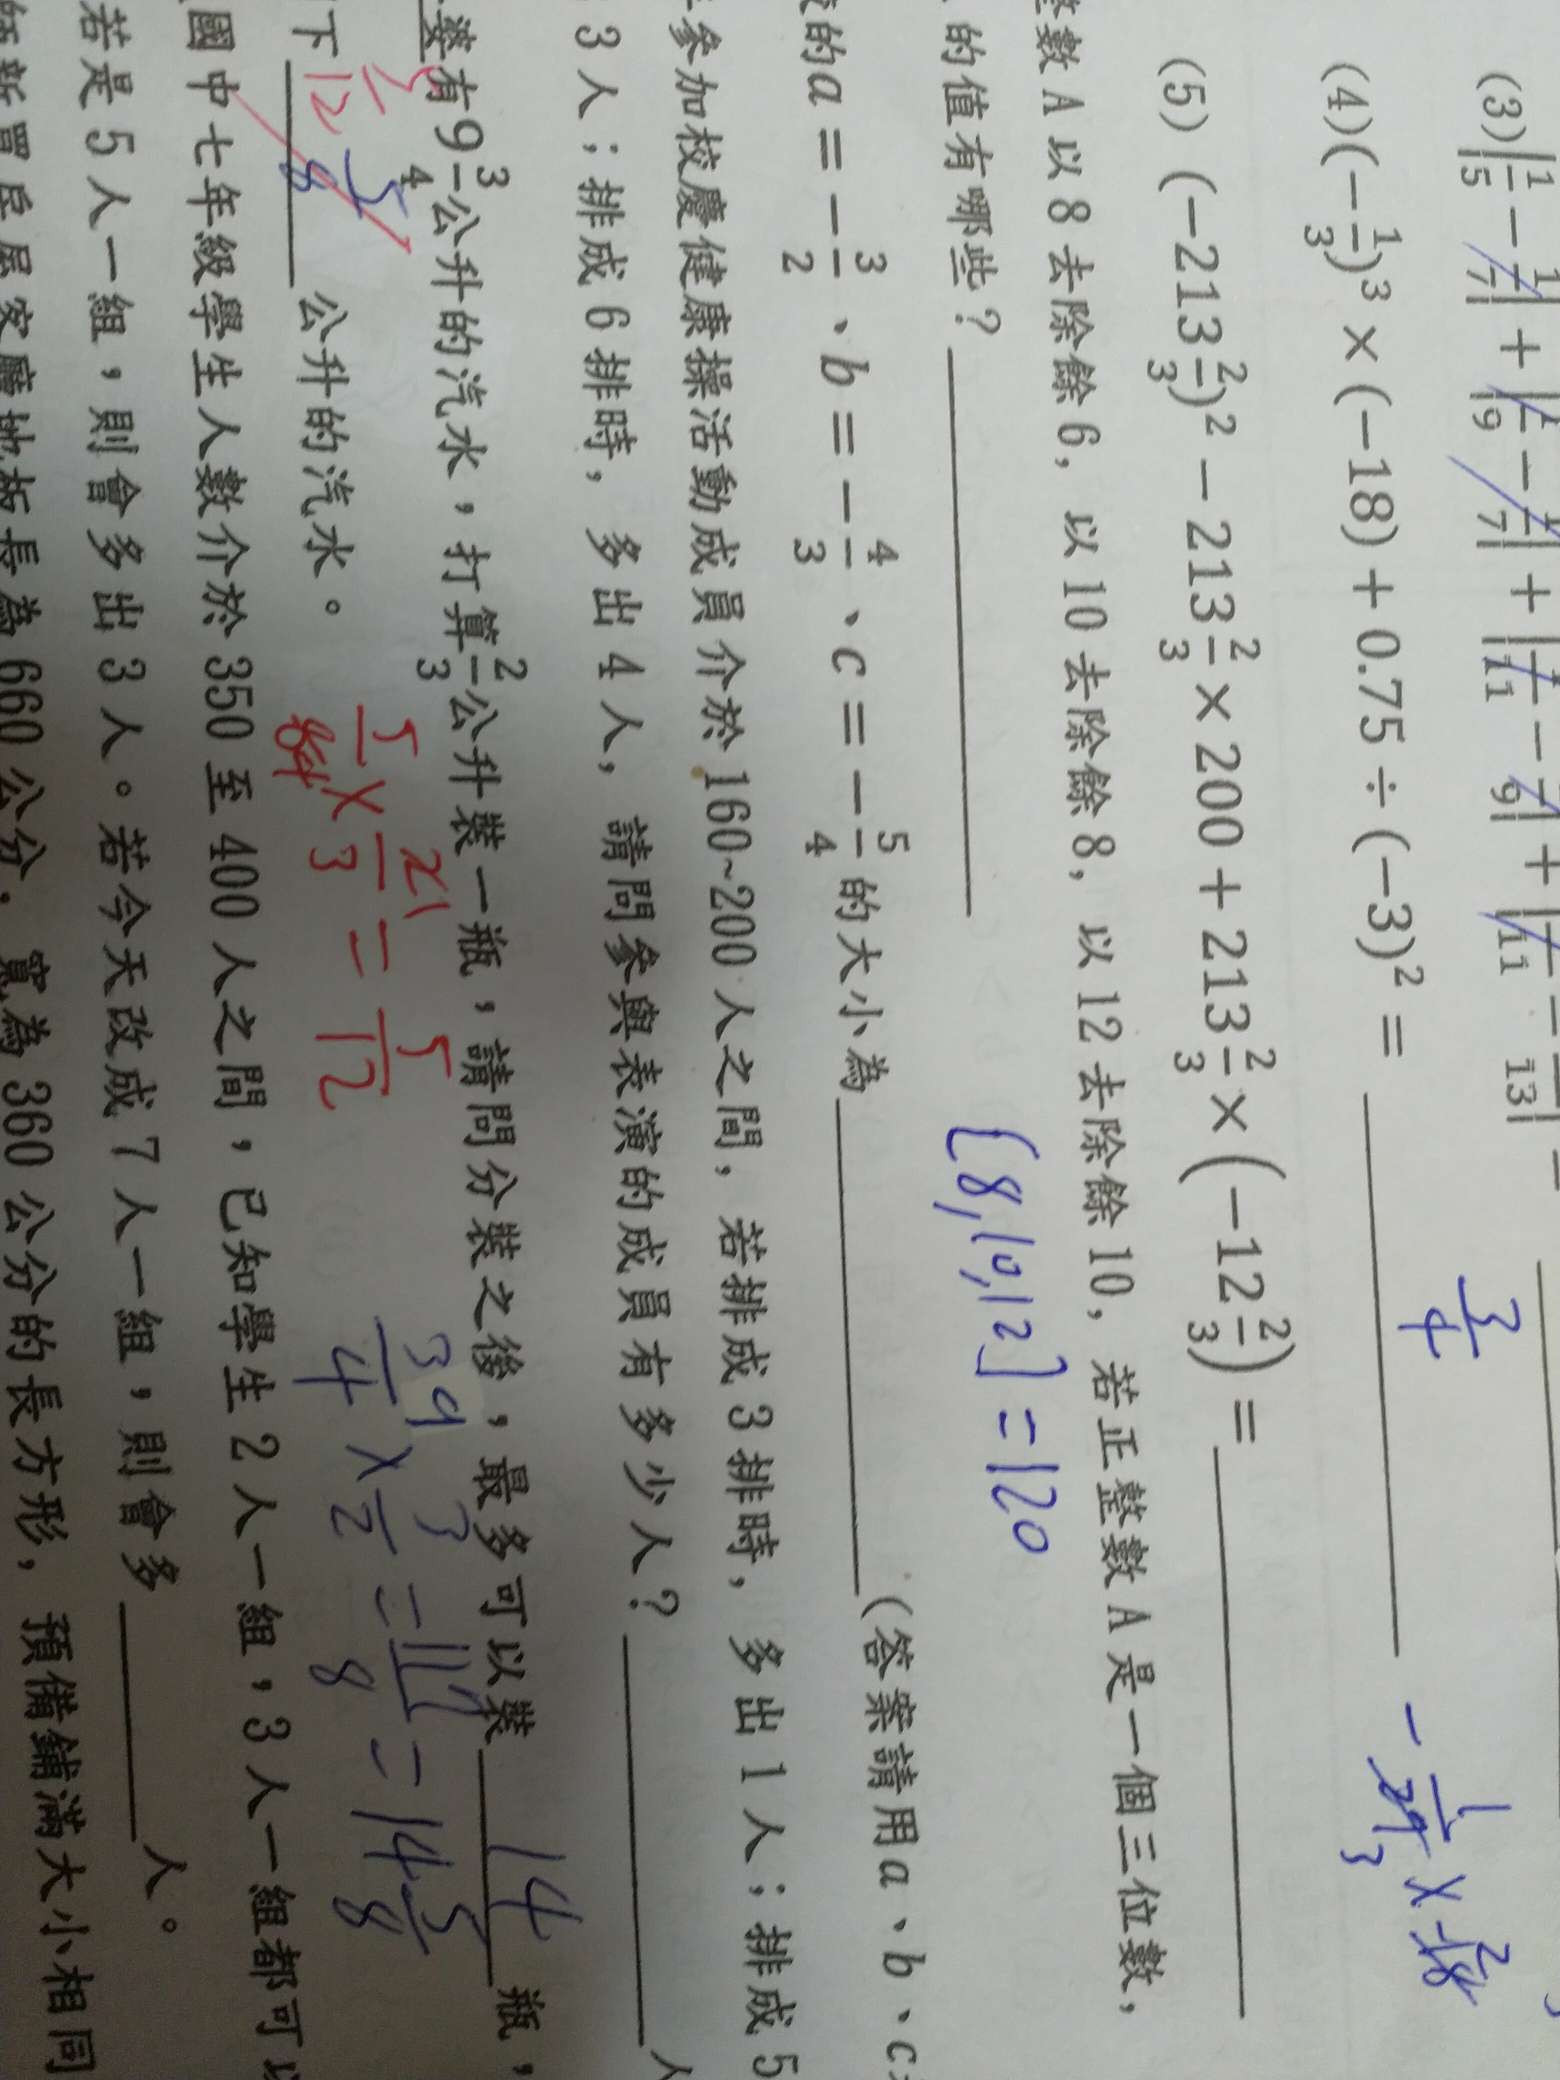 (3)|1/5-1/7|+|1/9-1/7|+|1/11-1/9|+|1/11-1/13|-
3/4
(4)(-1/3)³×(-18)+0.75÷(-3)²=
(5) (-213 2/3)²-213 2/3×200+213 2/3×(-12 2/3)=
數 A 以 8 去除餘 6, 以 10 去除餘 8, 以 12 去除餘 10, 若正整數 A 是一個三位數,
的值有哪些?
[8,10,12]=120
的a=-3/2、b=-4/3、c=-5/4的大小為 (答案請用a、b、c
參加校慶健康操活動成員介於 160~200 人之間, 若排成 3 排時, 多出 1 人;排成 5
3 人;排成 6 排時, 多出 4 人, 請問參與表演的成員有多少人? 人
婆有9 3/4公升的汽水,打算2/3公升裝一瓶,請問分裝之後,最多可以裝 14 瓶,
下 5/12 5/8 公升的汽水。
5/8 × 2/3 = 5/12
39/4 × 3/2 = 117/8 = 14 5/8
國中七年級學生人數介於 350 至 400 人之間,已知學生 2 人一組,3 人一組都可以
若是 5 人一組,則會多出 3 人。若今天改成 7 人一組,則會多 人。
新買房屋客廳地板長為 660 公分, 寬為 360 公分的長方形, 預備鋪滿大小相同